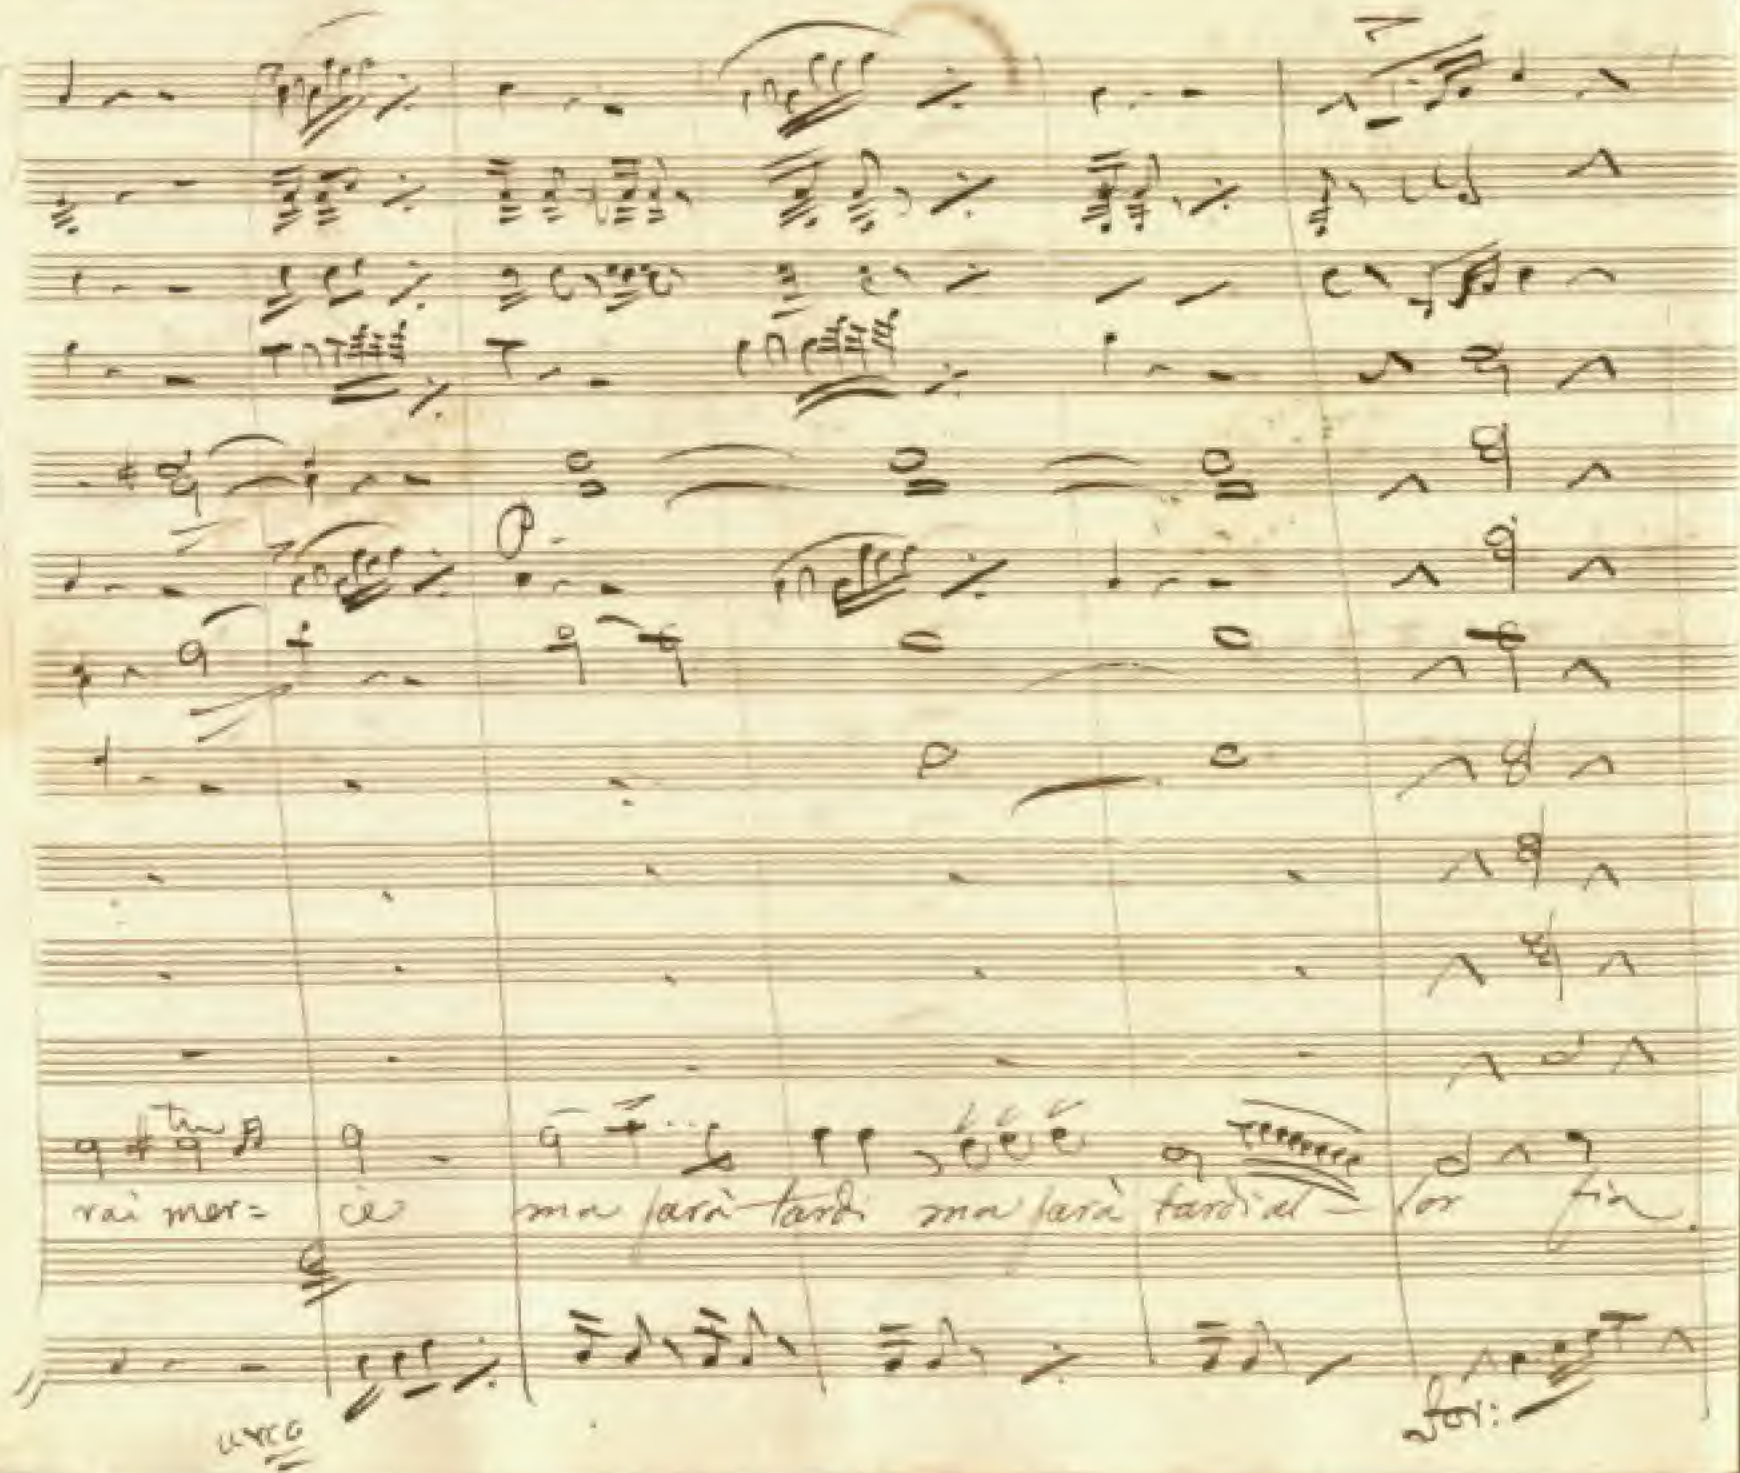 rai mer= cè ma sarà tardi ma sarà tardi al - lor fia
arco
for: